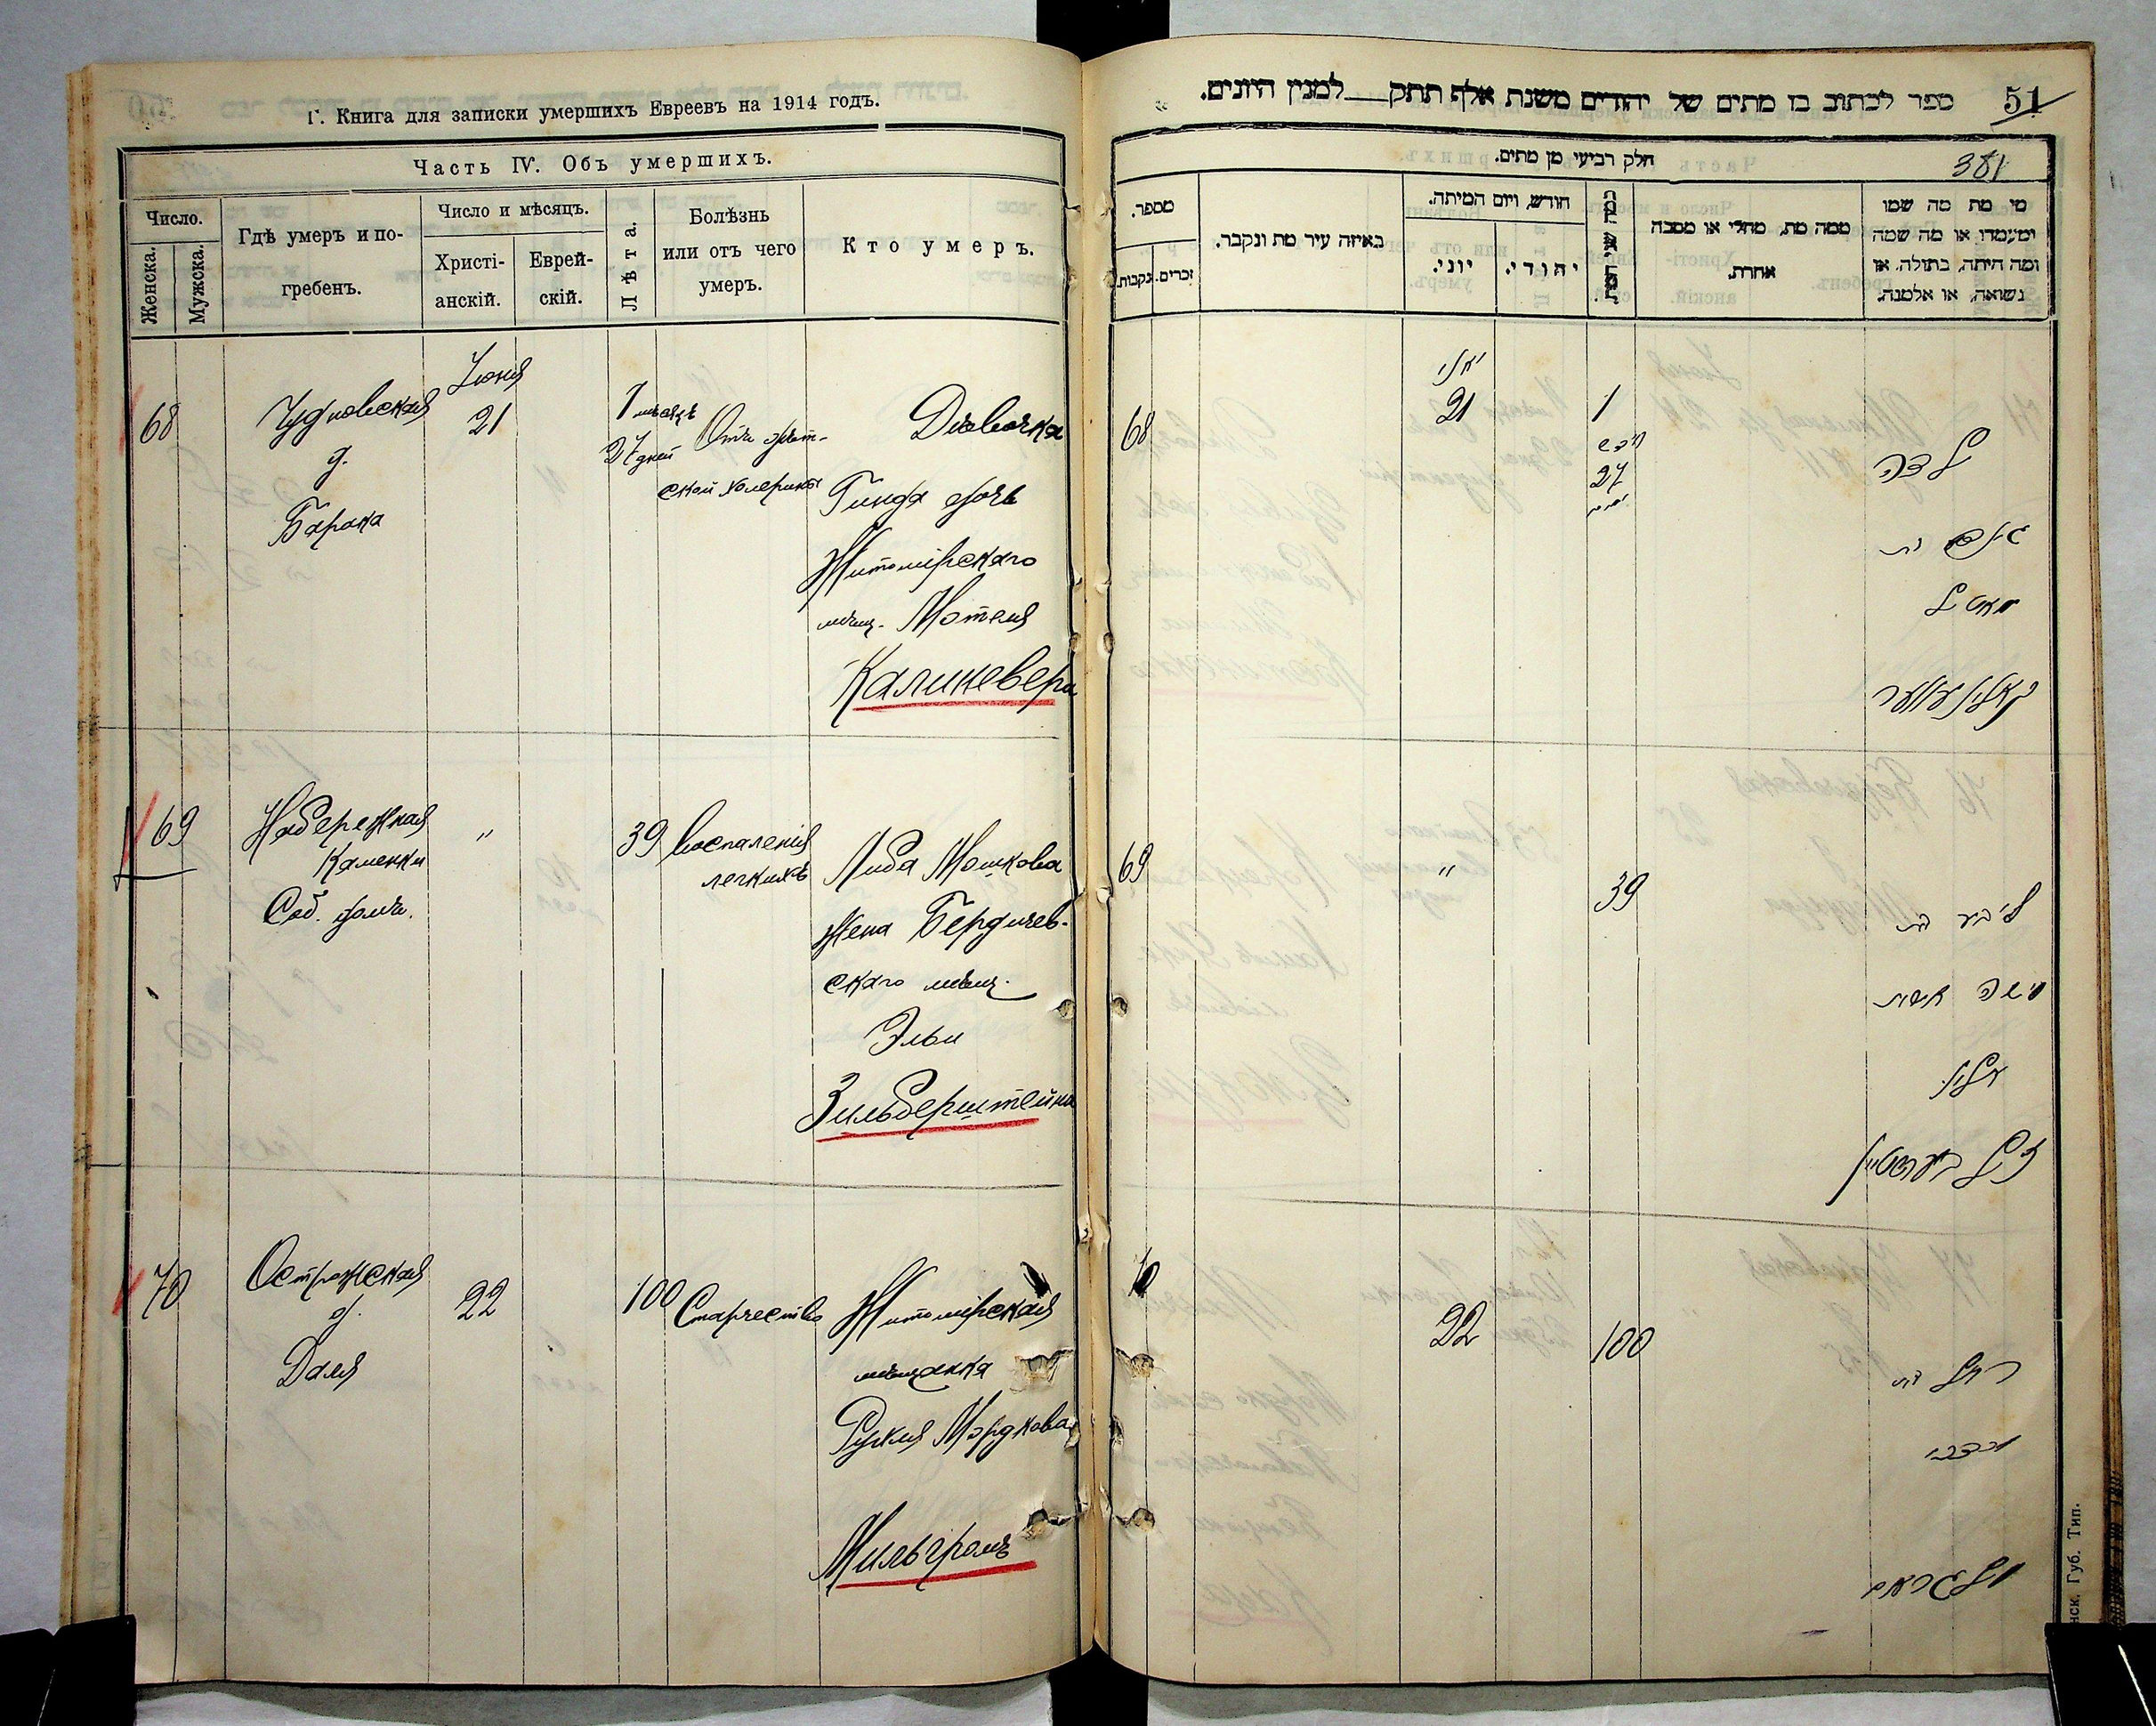 Г. Книга для записки умершихъ Евреевъ на 1914 годъ.
Часть IV. Объ умершихъ.
Число.
Женска.
Мужска.
Гдѣ умеръ и по-
гребенъ.
Число и мѣсяцъ.
Христі-
анскій.
Еврей-
скій.
Лѣта.
Болѣзнь
или отъ чего
умеръ.
Кто умеръ.
68
Чудновская
д.
Барака
Іюня
21
1 мѣсяцъ
27 дней
Отъ дѣт-
ской холерины
Дѣвочка
Гинда дочь
Житомірскаго
мѣщ. Мотеля
Калиневера
69
Набережная
Каменки
Соб. домъ.
"
39
Воспаленія
легкихъ
Либа Мошкова
жена Бердичев-
скаго мѣщ.
Эльи
Зильберштейна
70
Острожская
д.
Даля
22
100
Старчество
Житомірская
мѣщанка
Рухля Мордкова
Мильгромъ
ספר לכתוב בו מתים של יהודים משנת אלף תתק למנין היונים.
51
חלק רביעי מן מתים.
381
מספר.
נקבות.
זכרים.
באיזה עיר מת ונקבר.
חודש, ויום המיתה.
יוני.
יהודי.
ממה מת, מחלי או מסבה
אחרת.
מי מת מה שמו
ומעמדו או מה שמה
ומה היתה, בתולה, או
נשואה, או אלמנה.
68
יוני
21
1
חדש
27
ימים
ילדה
בת
קאלינעווער
69
"
39
ליבע בת
משה אשת
עליו
זילבערשטיין
70
22
100
רחל בת
מרדכי
מילגראם
нск. Губ. Тип.